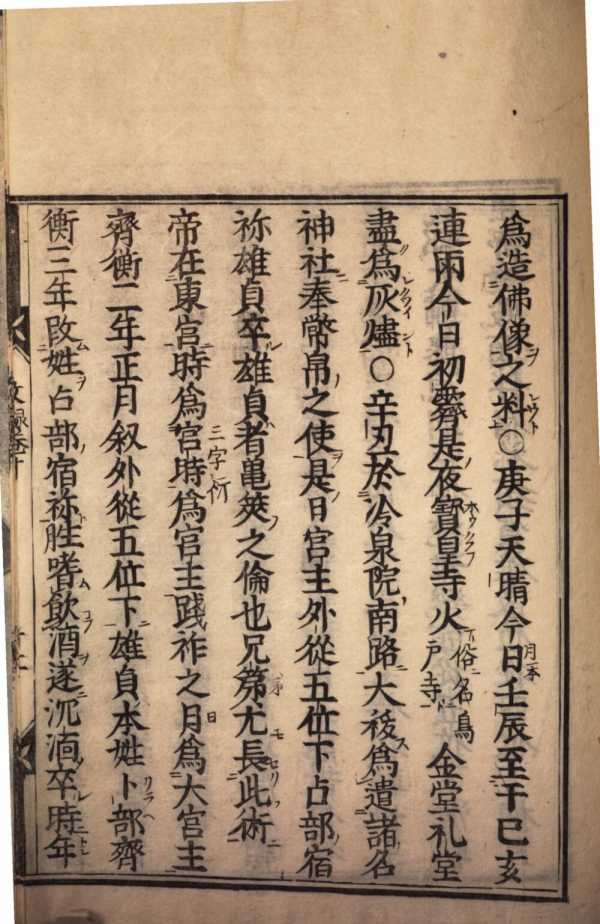 爲造佛像之料○庚子天晴今日壬辰至干巳亥
連雨今日初霽是夜寶皇寺火俗名鳥戸寺金堂礼堂
盡爲灰燼○辛丑於冷泉院南路大祓爲遣諸名
神社奉幣帛之使是日宮主外從五位下占部宿
祢雄貞卒雄貞者亀筴之倫也兄苐尤長此術
帝在東宮時爲宮時爲宮主踐祚之月爲大宮主
三字衍
齊衡二年正月叙外從五位下雄貞本姓卜部齊
衡三年改姓占部宿祢性嗜飲酒遂沉湎卒時年